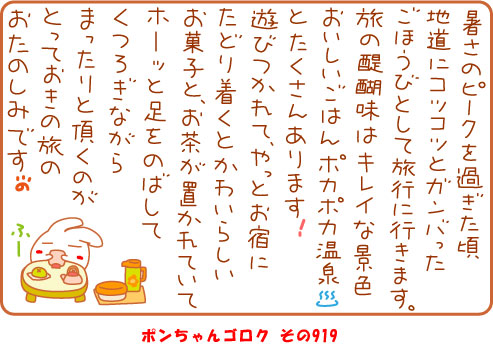 暑さのピークを過ぎた頃
地道にコツコツとガンバった
ごほうびとして旅行に行きます。
旅の醍醐味はキレイな景色
おいしいごはん ポカポカ温泉♨
とたくさんあります！
遊びつかれて、やっとお宿に
たどり着くとかわいらしい
お菓子と、お茶が置かれていて
ホーッと足をのばして
くつろぎながら
まったりと頂くのが
とっておきの旅の
おたのしみです
ふー
ポンちゃんゴロク その919